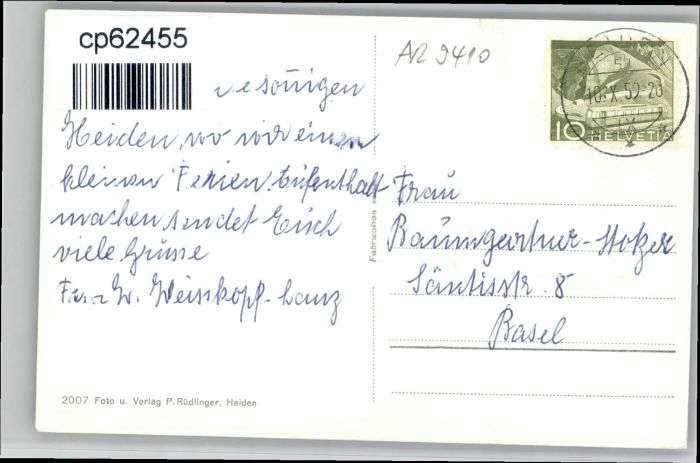 cp62455
AR 9410
sonigen
Heiden, wo wir einen
kleinen Ferien Aufenthalt
machen sendet Euch
viele Grüsse
Fr. W. Weisskopf-Lanz
10 HELVETIA
10.X.52-20
Frau
Baumgartner-Stotzer
Säntisstr. 8
Basel
2007 Foto u. Verlag P. Rüdlinger, Heiden